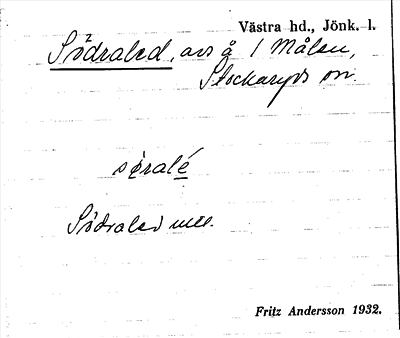 Västra hd., Jönk. l.
Södraled, avs å 1 Målen,
Stockaryds sn.
søralé
Södraled mell.
Fritz Andersson 1932.